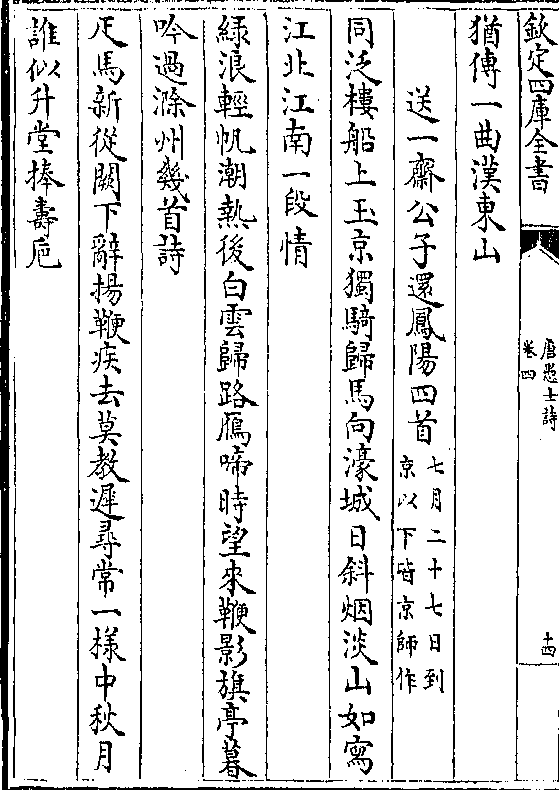 欽定四庫全書
唐愚士詩
卷四
十四
猶傳一曲漢東山
送一齋公子還鳳陽四首
七月二十七日到
京以下皆京師作
同泛樓船上玉京獨騎歸馬向濠城日斜烟淡山如寫
江北江南一段情
綠浪輕帆潮熱後白雲歸路鴈啼時望來鞭影旗亭暮
吟過滁州幾首詩
疋馬新從闕下辭揚鞭疾去莫教遲尋常一樣中秋月
誰似升堂捧壽巵